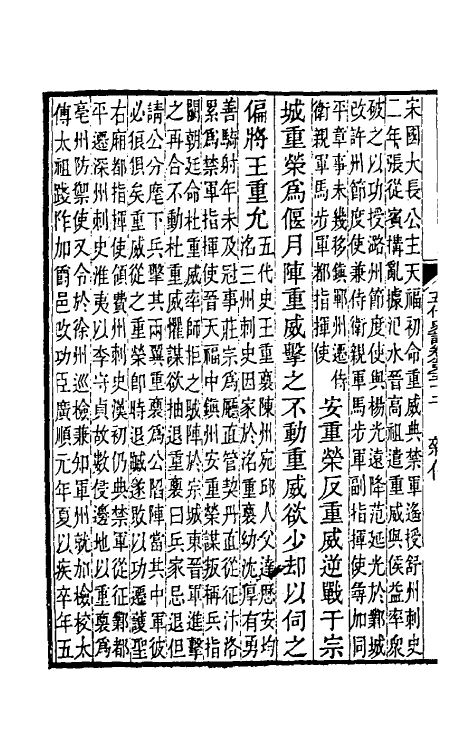 宋國大長公主天福初命重威典禁軍遙授舒州刺史
二年張從賓搆亂據氾水晉高祖遣重威與侯益率衆
破之以功授潞州節度使與楊光遠降范延光於鄴城
改許州節度使兼侍衛親軍馬步軍副指揮使尋加同
平章事未幾移鎮鄆州遷侍
衛親軍馬步軍都指揮使
安重榮反重威逆戰于宗
城重榮爲偃月陣重威擊之不動重威欲少却以伺之
偏將王重允
五代史王重裔陳州宛邱人父逵歷安均
洺三州刺史因家於洺重裔幼沈厚有勇
善騎射年未及冠事莊宗爲廳直管契丹直從征汴洛
累爲禁軍指揮使晉天福中鎮州安重榮謀叛稱兵指
闕朝廷命杜重威率師拒之賊陣於宗城東晉軍進擊
之再合不動杜重威懼謀欲抽退重裔曰兵家忌退但
請公分麾下兵擊其兩翼重裔爲公陷陣當其中軍彼
必狼狽矣重威從之重榮即時退蹴遂敗以功遷護聖
右廂都指揮使領費州刺史漢初仍典禁軍從征鄴都
平遷深州刺史淮夷以李守貞故數侵邊地以重裔爲
亳州防禦使又令於徐州巡檢兼知軍州就加檢校太
傅太祖踐阼加爵邑改功臣廣順元年夏以疾卒年五
雜傳